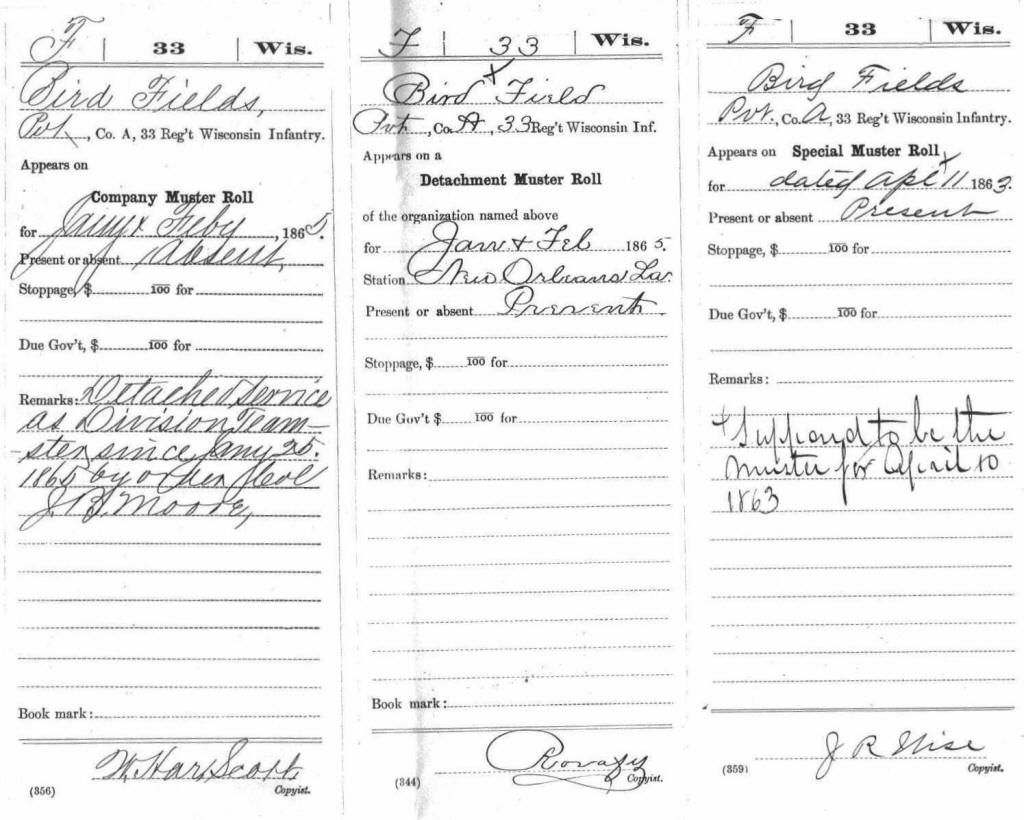 F | 33 | Wis.
Bird Fields,
Pvt., Co. A, 33 Reg't Wisconsin Infantry.
Appears on
Company Muster Roll
for Jany & Feby, 1865.
Present or absent Absent,
Stoppage, $ 100 for
Due Gov't, $ 100 for
Remarks: Detached Service
as Division Team-
ster since Jany 25.
1865 by order Col
J. B. Moore,
Book mark:
W. Hart Scott
(356) Copyist.
F | 33 | Wis.
x
Bird Field
Pvt, Co. A, 33 Reg't Wisconsin Inf.
Appears on a
Detachment Muster Roll
of the organization named above
for Jan & Feb 1865.
Station New Orleans La.
Present or absent Present
Stoppage, $ 100 for
Due Gov't $ 100 for
Remarks:
Book mark:
(344) Copyist.
F | 33 | Wis.
Bird Fields
Pvt., Co. A, 33 Reg't Wisconsin Infantry.
Appears on Special Muster Roll
x
for dated Apl 11 1863.
Present or absent Present
Stoppage, $ 100 for
Due Gov't, $ 100 for
Remarks:
x Supposed to be the
muster for April 10
1863
J R Wise
(359) Copyist.